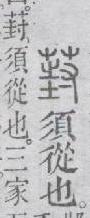 葑須從也。
葑、須從也。三家